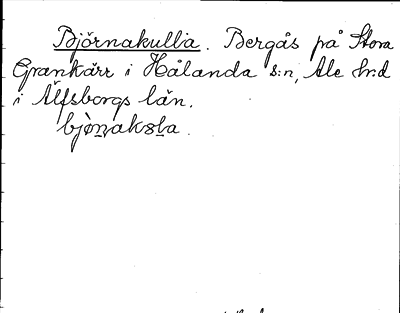 Björnakullia. Bergås på Stora
Grankärr i Hålanda s:n, Ale hr:d
i Älfsborgs län.